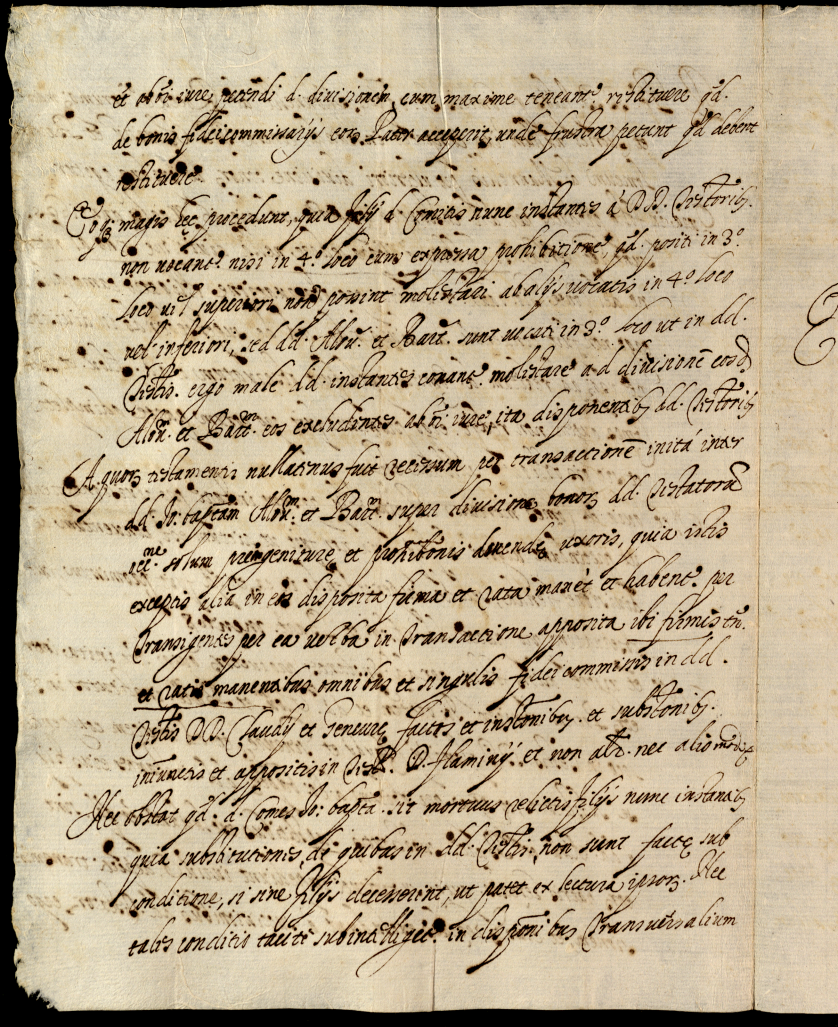 et ab oī iure petendi d. divisionem, cum maxime teneantr. restituere qd.
de bonis fideicommissarijs eor. Pater acceperit, unde frustra petant qd debent
restituere.
Eo magis hęc procedunt, quia filij d. Comitis nunc instantes à DD. Testorib.
non vocantr. nisi in 4.º loco cum expressa prohibitione, qd. positi in 3.º
loco vel superiori non possint molestari ab alijs vocatis in 4.º loco
vel inferiori, sed dd. Alex. et Bart. sunt vocati in 3.º loco ut in dd.
Testis. ergo male dd. instantes conantr. molestare ad divisionē eosd
et Bart. eos excludentes ab oī iure, ita disponentib. dd. Testorib
A quor. testamentis nullatenus fuit recessum per transactionē initā inter
dd. Jo: baptam et Bart. super divisione bonor. dd. Testatorū
solum primogeniturę et prohibitionis ducendę uxoris, quia istis
exceptis alia in eis disposita firma et rata manēt et habentr. per
Transigentes per ea verba in Transactione apposita ibi firmis tn.
et ratis manentibus omnibus et singulis fideicommissis in dd.
Testis DD. Claudij et Geneurę factis et instonibus. et substonib.
iniunctis et appositis in Test. D. Flaminij et non alr. nec alio modo
Nec obstat qd. d. Comes Jo: bapta. sit mortuus relictis filijs nunc instantib
quia substitutiones de quibus in dd. Testis. non sunt factę sub
conditione, si sine filijs decesserint, ut patet ex lectura ipsor. Nec
talis conditio tacite subintelligitr. in disponibus Transversalium